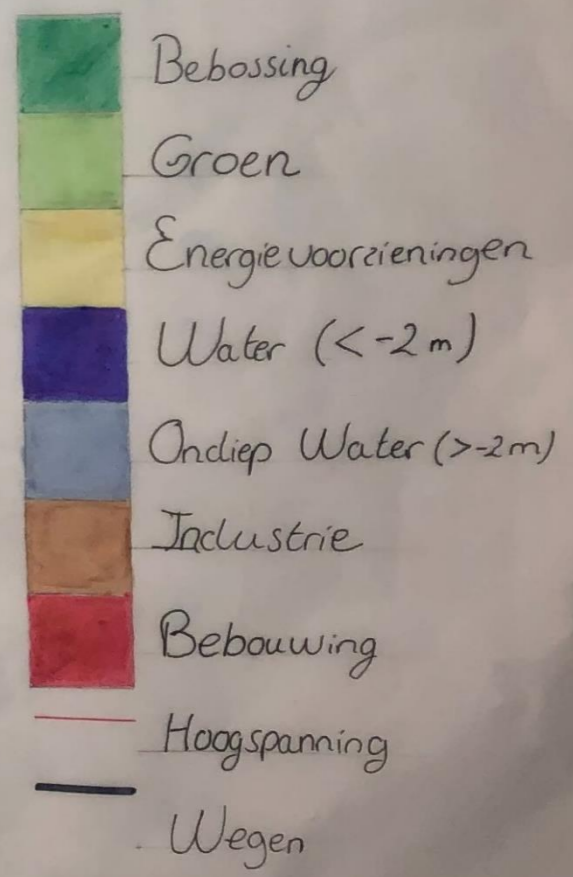 Bebossing
Groen
Energievoorzieningen
Water (<-2 m)
Ondiep Water (>-2m)
Industrie
Bebouwing
Hoogspanning
Wegen